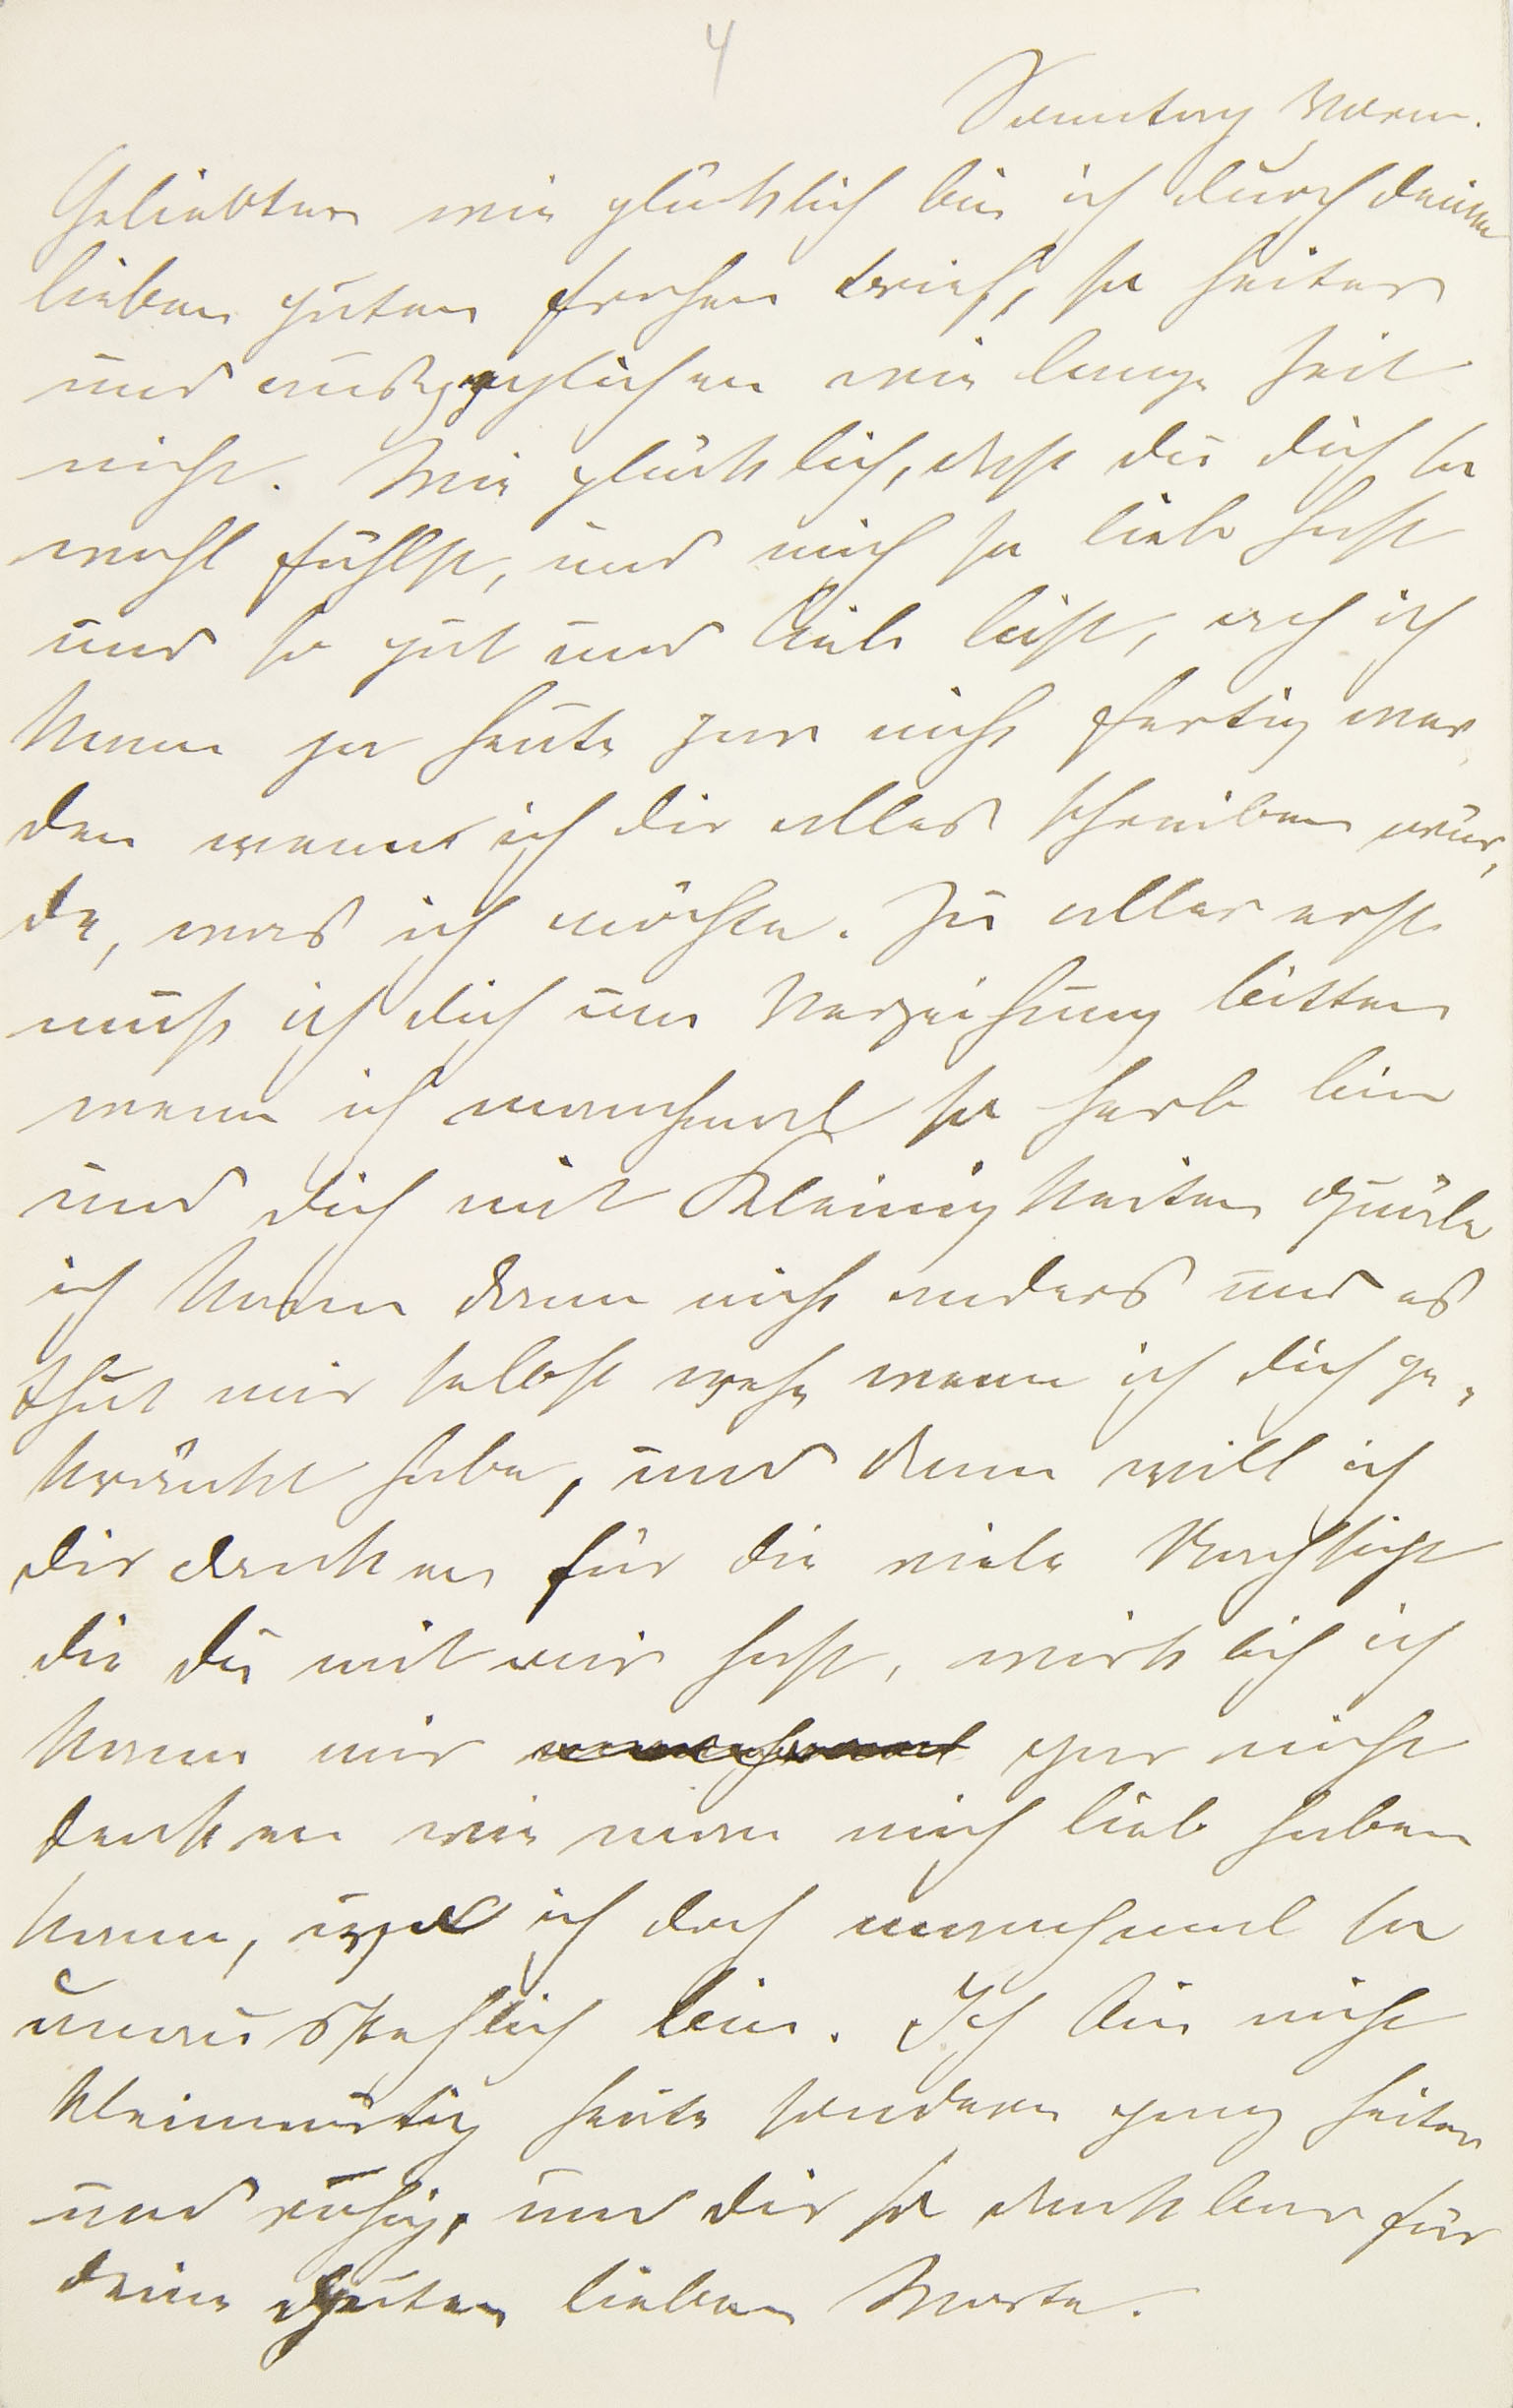 4
Sonntag Vorm.
Geliebter wie glücklich bin ich durch deinen
lieben guten frohen Brief, so heiter
und ausgeglichen wie lange Zeit
nicht. Wie glücklich, dass du dich so
wohl fühlst, und mich so lieb hast
und so gut und lieb bist, ach ich
kann ja heute gar nicht fertig wer¬
den wenn ich dir alles schreiben wür¬
de, was ich möchte. Zu aller erst
muss ich dich um Verzeihung bitten
wenn ich manchmal so herb bin
und dich mit Kleinigkeiten quäle
ich kann dann nicht anders und es
thut mir selbst wehe wenn ich dich ge¬
kränkt habe, und dann will ich
dir danken für die viele Nachsicht
die du mit mir hast, wirklich ich
kann mir manchmal gar nicht
denken wie man mich lieb haben
kann, ich doch manchmal so
unausstehlich bin. Ich bin nicht
kleinmütig heute sondern ganz heiter
und ruhig, und dir so dankbar für
deine guten lieben Worte.